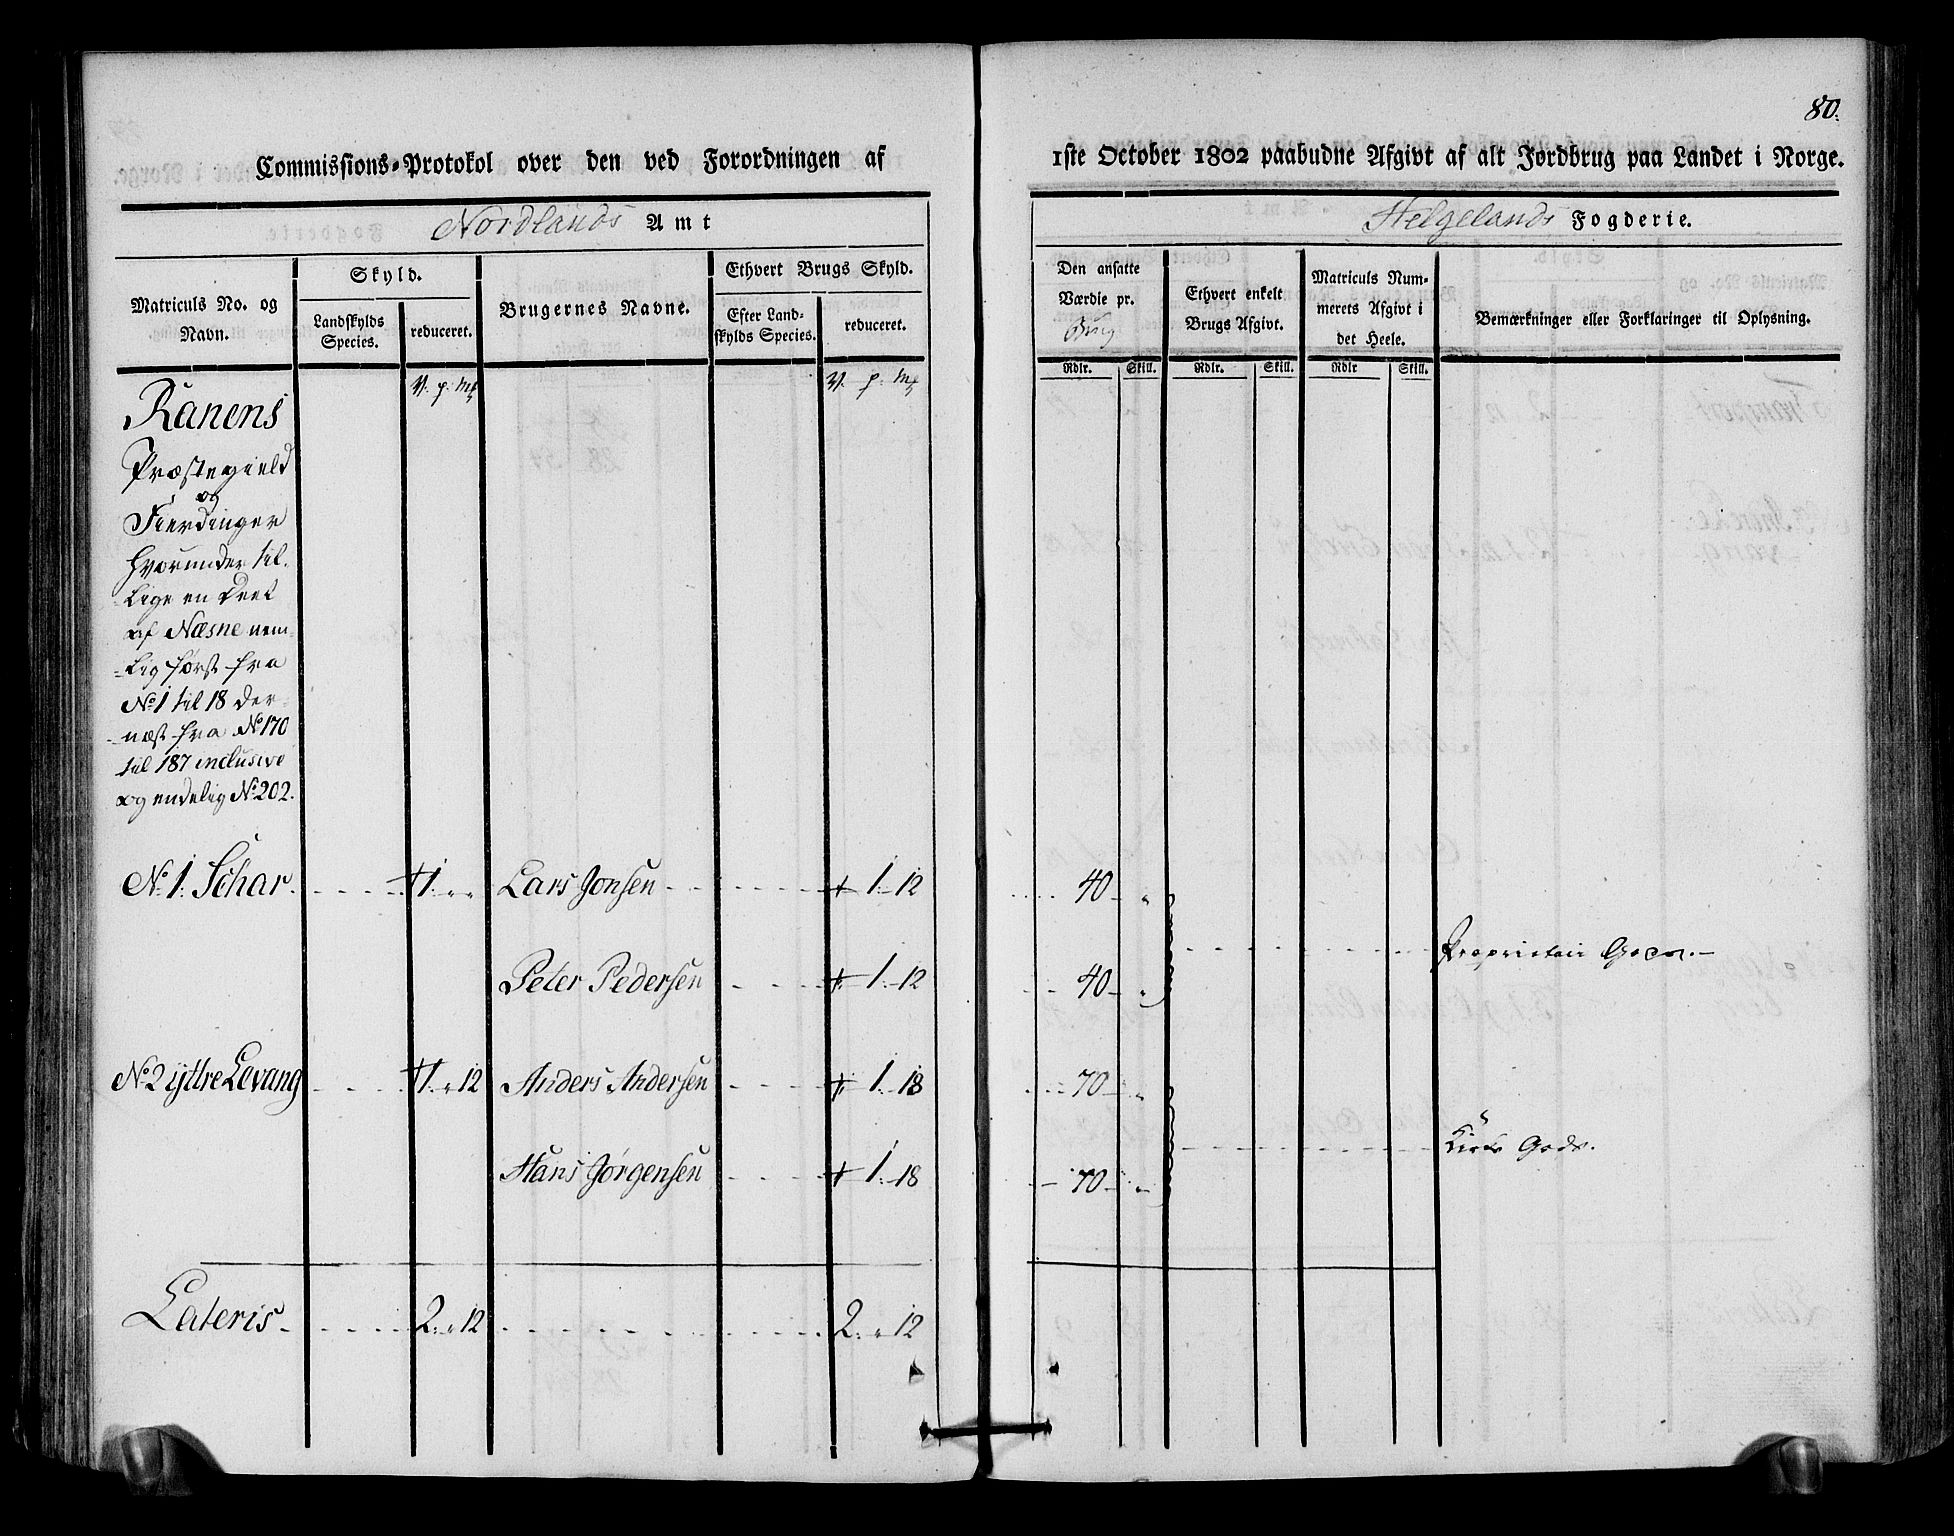 80.
Commissions-Protokol over den ved Forordningen af 1ste October 1802 paabudne Afgivt af alt Jordbrug paa Landet i Norge.
Nordlands Amt Helgelands Fogderie.
Matriculs No. og Navn.
Skyld.
Landskylds Species.
reduceret.
Brugernes Navne.
Ethvert Brugs Skyld.
Efter Landskylds Species.
reduceret.
Den ansatte Værdie pr. Brug
Rdlr. Skill.
Ethvert enkelt Brugs Afgivt.
Rdlr. Skill.
Matriculs Nummerets Afgivt i det Heele.
Rdlr Skill.
Bemærkninger eller Forklaringer til Oplysning.
V. p: Mk V. p: Mk
Ranens
Præstegield
og
Fierdinger
hvorunder til-
lige en Deel
af Næsne nem-
lig først fra
No 1 til 18 der-
næst fra No 170
til 187 inclusive
og endelig No 202.
No 1. Schar. 1. " " Lars Jonsen 1. - 12 40 - "
Proprietair Gods.
Peter Pedersen 1. - 12 40 - "
No 2 ÿttre Levang 1. " 12 Anders Andersen 1. - 18 70 - "
Kirke Gods.
Hans Jørgensen 1. - 18 70 - "
Lateris 2. " 12 2. " 12